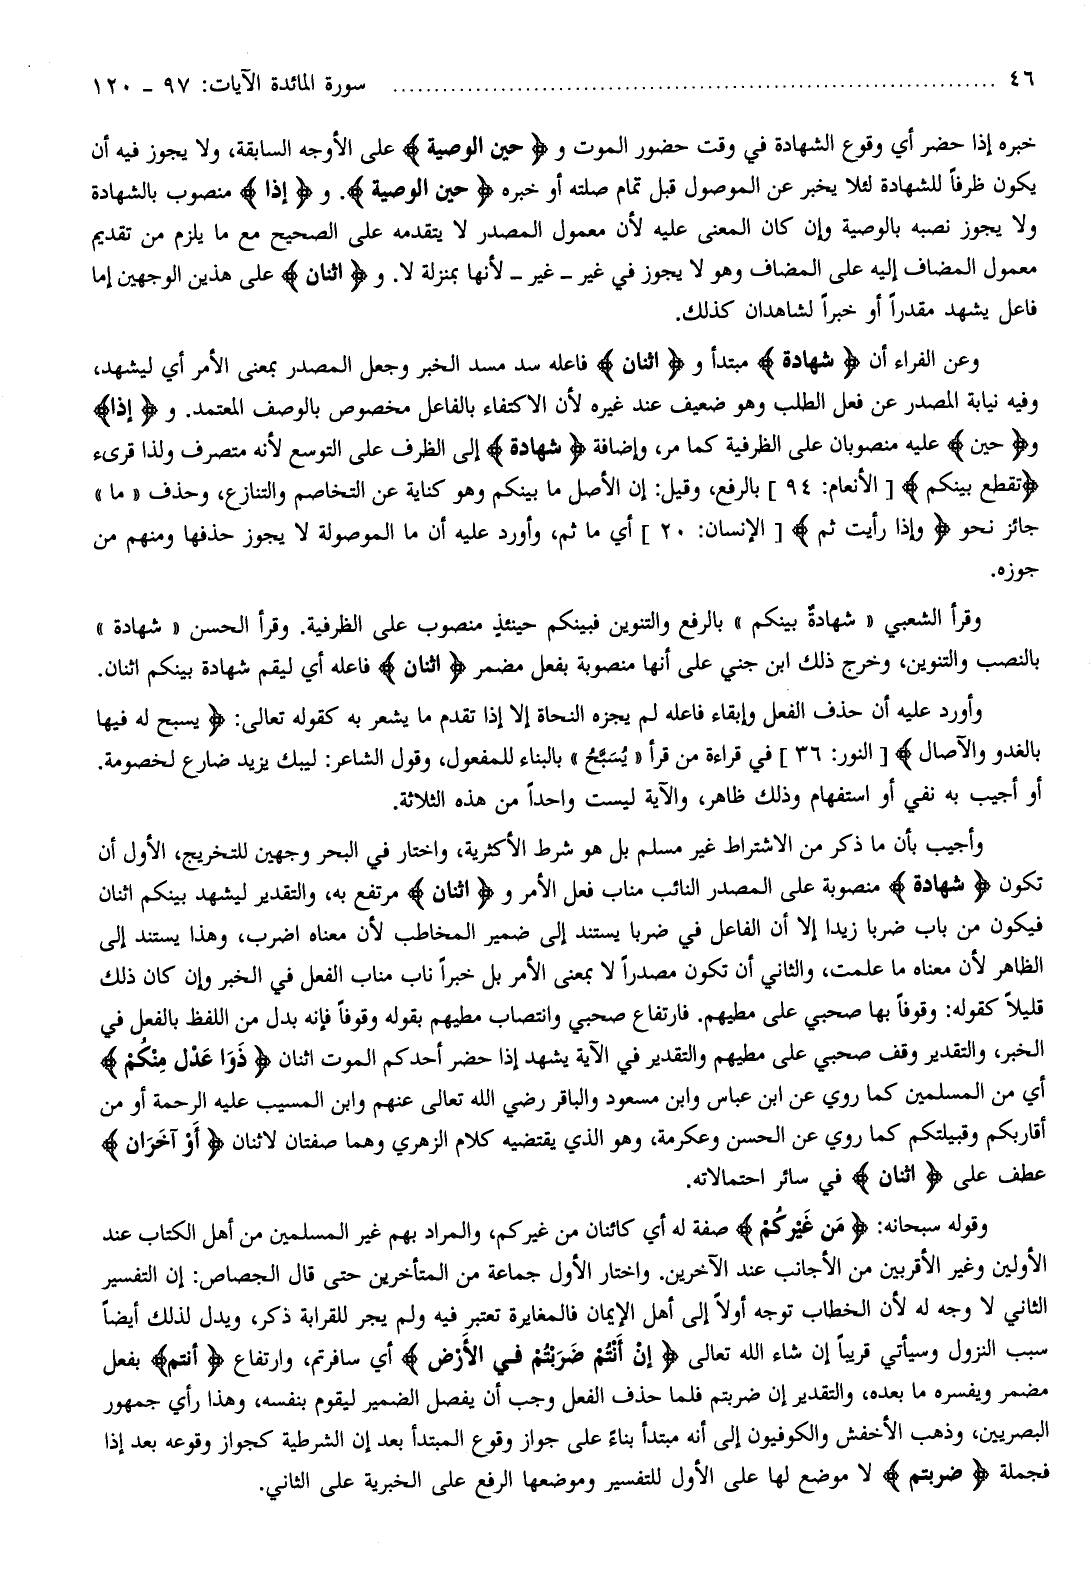 ٤٦ ........................................ سورة المائدة الآيات: ٩٧ ـ ١٢٠
خبره إذا حضر أي وقوع الشهادة في وقت حضور الموت و ﴿ حين الوصية ﴾ على الأوجه السابقة، ولا يجوز فيه أن
يكون ظرفاً للشهادة لئلا يخبر عن الموصول قبل تمام صلته أو خبره ﴿ حين الوصية ﴾. و ﴿ إذا ﴾ منصوب بالشهادة
ولا يجوز نصبه بالوصية وإن كان المعنى عليه لأن معمول المصدر لا يتقدمه على الصحيح مع ما يلزم من تقديم
معمول المضاف إليه على المضاف وهو لا يجوز في غير ـ غير ـ لأنها بمنزلة لا. و ﴿ اثنان ﴾ على هذين الوجهين إما
فاعل يشهد مقدراً أو خبراً لشاهدان كذلك.
وعن الفراء أن ﴿ شهادة ﴾ مبتدأ و ﴿ اثنان ﴾ فاعله سد مسد الخبر وجعل المصدر بمعنى الأمر أي ليشهد،
وفيه نيابة المصدر عن فعل الطلب وهو ضعيف عند غيره لأن الاكتفاء بالفاعل مخصوص بالوصف المعتمد. و ﴿ إذا﴾
و﴿ حين ﴾ عليه منصوبان على الظرفية كما مر، وإضافة ﴿ شهادة ﴾ إلى الظرف على التوسع لأنه متصرف ولذا قرىء
﴿تقطع بينكم ﴾ [ الأنعام: ٩٤ ] بالرفع، وقيل: إن الأصل ما بينكم وهو كناية عن التخاصم والتنازع، وحذف « ما »
جائز نحو ﴿ وإذا رأيت ثم ﴾ [ الإنسان: ٢٠ ] أي ما ثم، وأورد عليه أن ما الموصولة لا يجوز حذفها ومنهم من
جوزه.
وقرأ الشعبي « شهادةٌ بينكم » بالرفع والتنوين فبينكم حينئذٍ منصوب على الظرفية. وقرأ الحسن « شهادة »
بالنصب والتنوين، وخرج ذلك ابن جني على أنها منصوبة بفعل مضمر ﴿ اثنان ﴾ فاعله أي ليقم شهادة بينكم اثنان.
وأورد عليه أن حذف الفعل وإبقاء فاعله لم يجزه النحاة إلا إذا تقدم ما يشعر به كقوله تعالى: ﴿ يسبح له فيها
بالغدو والآصال ﴾ [ النور: ٣٦ ] في قراءة من قرأ « يُسَبَّحُ » بالبناء للمفعول، وقول الشاعر: ليبك يزيد ضارع لخصومة.
أو أجيب به نفي أو استفهام وذلك ظاهر، والآية ليست واحداً من هذه الثلاثة.
وأجيب بأن ما ذكر من الاشتراط غير مسلم بل هو شرط الأكثرية، واختار في البحر وجهين للتخريج، الأول أن
تكون ﴿ شهادة ﴾ منصوبة على المصدر النائب مناب فعل الأمر و ﴿ اثنان ﴾ مرتفع به، والتقدير ليشهد بينكم اثنان
فيكون من باب ضربا زيدا إلا أن الفاعل في ضربا يستند إلى ضمير المخاطب لأن معناه اضرب، وهذا يستند إلى
الظاهر لأن معناه ما علمت، والثاني أن تكون مصدراً لا بمعنى الأمر بل خبراً ناب مناب الفعل في الخبر وإن كان ذلك
قليلاً كقوله: وقوفاً بها صحبي على مطيهم. فارتفاع صحبي وانتصاب مطيهم بقوله وقوفاً فإنه بدل من اللفظ بالفعل في
الخبر، والتقدير وقف صحبي على مطيهم والتقدير في الآية يشهد إذا حضر أحدكم الموت اثنان ﴿ ذَوَا عَدْل مِنْكُمْ ﴾
أي من المسلمين كما روي عن ابن عباس وابن مسعود والباقر رضي الله تعالى عنهم وابن المسيب عليه الرحمة أو من
أقاربكم وقبيلتكم كما روي عن الحسن وعكرمة، وهو الذي يقتضيه كلام الزهري وهما صفتان لاثنان ﴿ أَوْ آخَرَان ﴾
عطف على ﴿ اثنان ﴾ في سائر احتمالاته.
وقوله سبحانه: ﴿ مَن غَيْرِكُمْ ﴾ صفة له أي كائنان من غيركم، والمراد بهم غير المسلمين من أهل الكتاب عند
الأولين وغير الأقربين من الأجانب عند الآخرين. واختار الأول جماعة من المتأخرين حتى قال الجصاص: إن التفسير
الثاني لا وجه له لأن الخطاب توجه أولاً إلى أهل الإيمان فالمغايرة تعتبر فيه ولم يجر للقرابة ذكر، ويدل لذلك أيضاً
سبب النزول وسيأتي قريباً إن شاء الله تعالى ﴿ إنْ أَنْتُمْ ضَرَبْتُمْ فـي الأَرْض ﴾ أي سافرتم، وارتفاع ﴿ أنتم﴾ بفعل
مضمر ويفسره ما بعده، والتقدير إن ضربتم فلما حذف الفعل وجب أن يفصل الضمير ليقوم بنفسه، وهذا رأي جمهور
البصريين، وذهب الأخفش والكوفيون إلى أنه مبتدأ بناءً على جواز وقوع المبتدأ بعد إن الشرطية كجواز وقوعه بعد إذا
فجملة ﴿ ضربتم ﴾ لا موضع لها على الأول للتفسير وموضعها الرفع على الخبرية على الثاني.